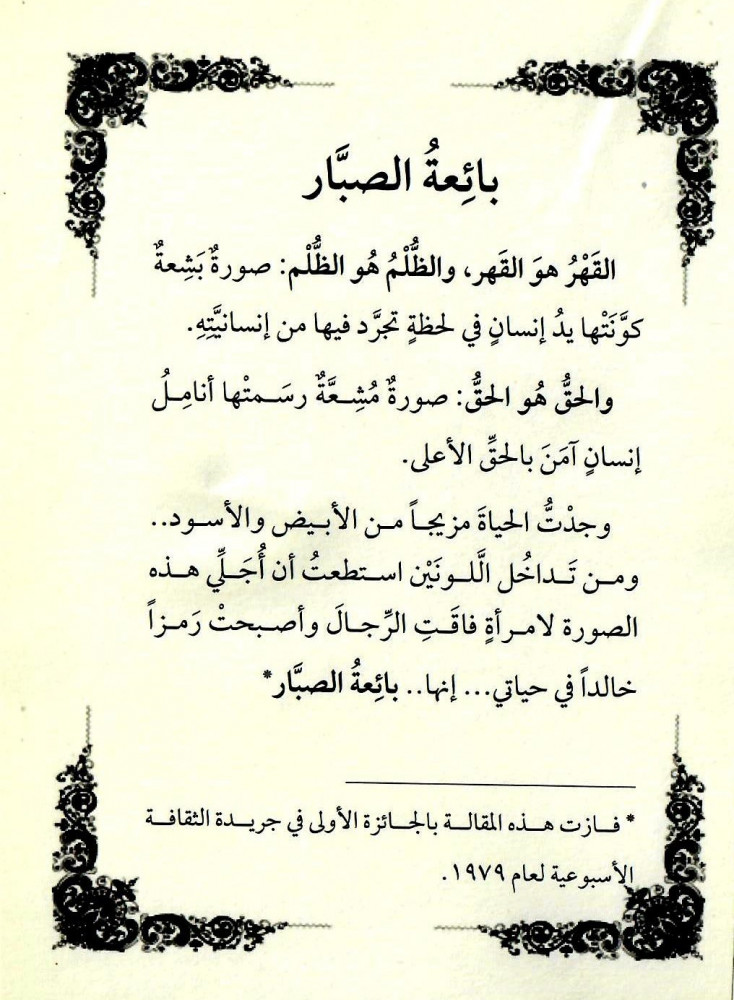 بائِعةُ الصبَّار
القَهْرُ هوَ القَهر، والظُّلْمُ هُو الظُّلْم: صورةٌ بَشِعةٌ
كوَّنَتْها يدُ إنسانٍ في لحظةٍ تجرَّد فيها من إنسانيَّتِهِ.
والحقُّ هُو الحقُّ: صورةٌ مُشِعَّةٌ رسَمتْها أنامِلُ
إنسانٍ آمَنَ بالحقِّ الأعلى.
وجدْتُّ الحياةَ مزيجاً من الأبيض والأسود..
ومن تَداخُل الَّلونَيْن استطعتُ أن أُجَلِّي هذه
الصورة لامرأةٍ فاقَتِ الرِّجالَ وأصبحتْ رَمزاً
خالداً في حياتي... إنها.. بائِعةُ الصبَّار*
* فازت هذه المقالة بالجائزة الأولى في جريدة الثقافة
الأسبوعية لعام ١٩٧٩.